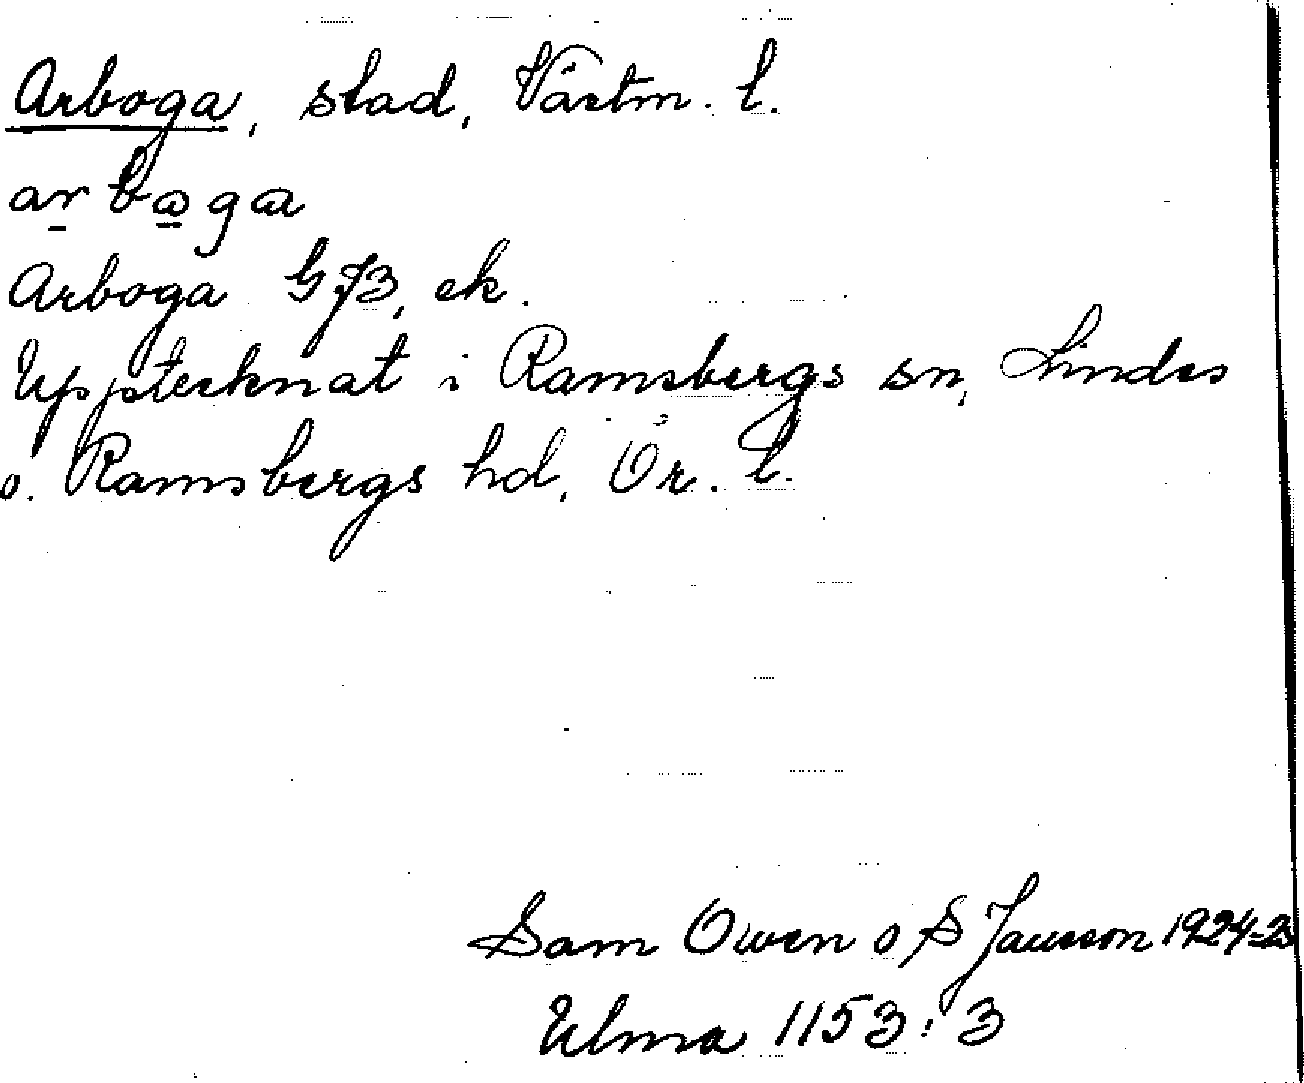 Arboga, stad, Västm. l.
arbωga
Arboga GJB, ek.
Upptecknat i Ramsbergs sn, Lindes
o. Ramsbergs hd, Ör. l.
Sam Owen o S Jansson 1924-25
Ulma 1153:3